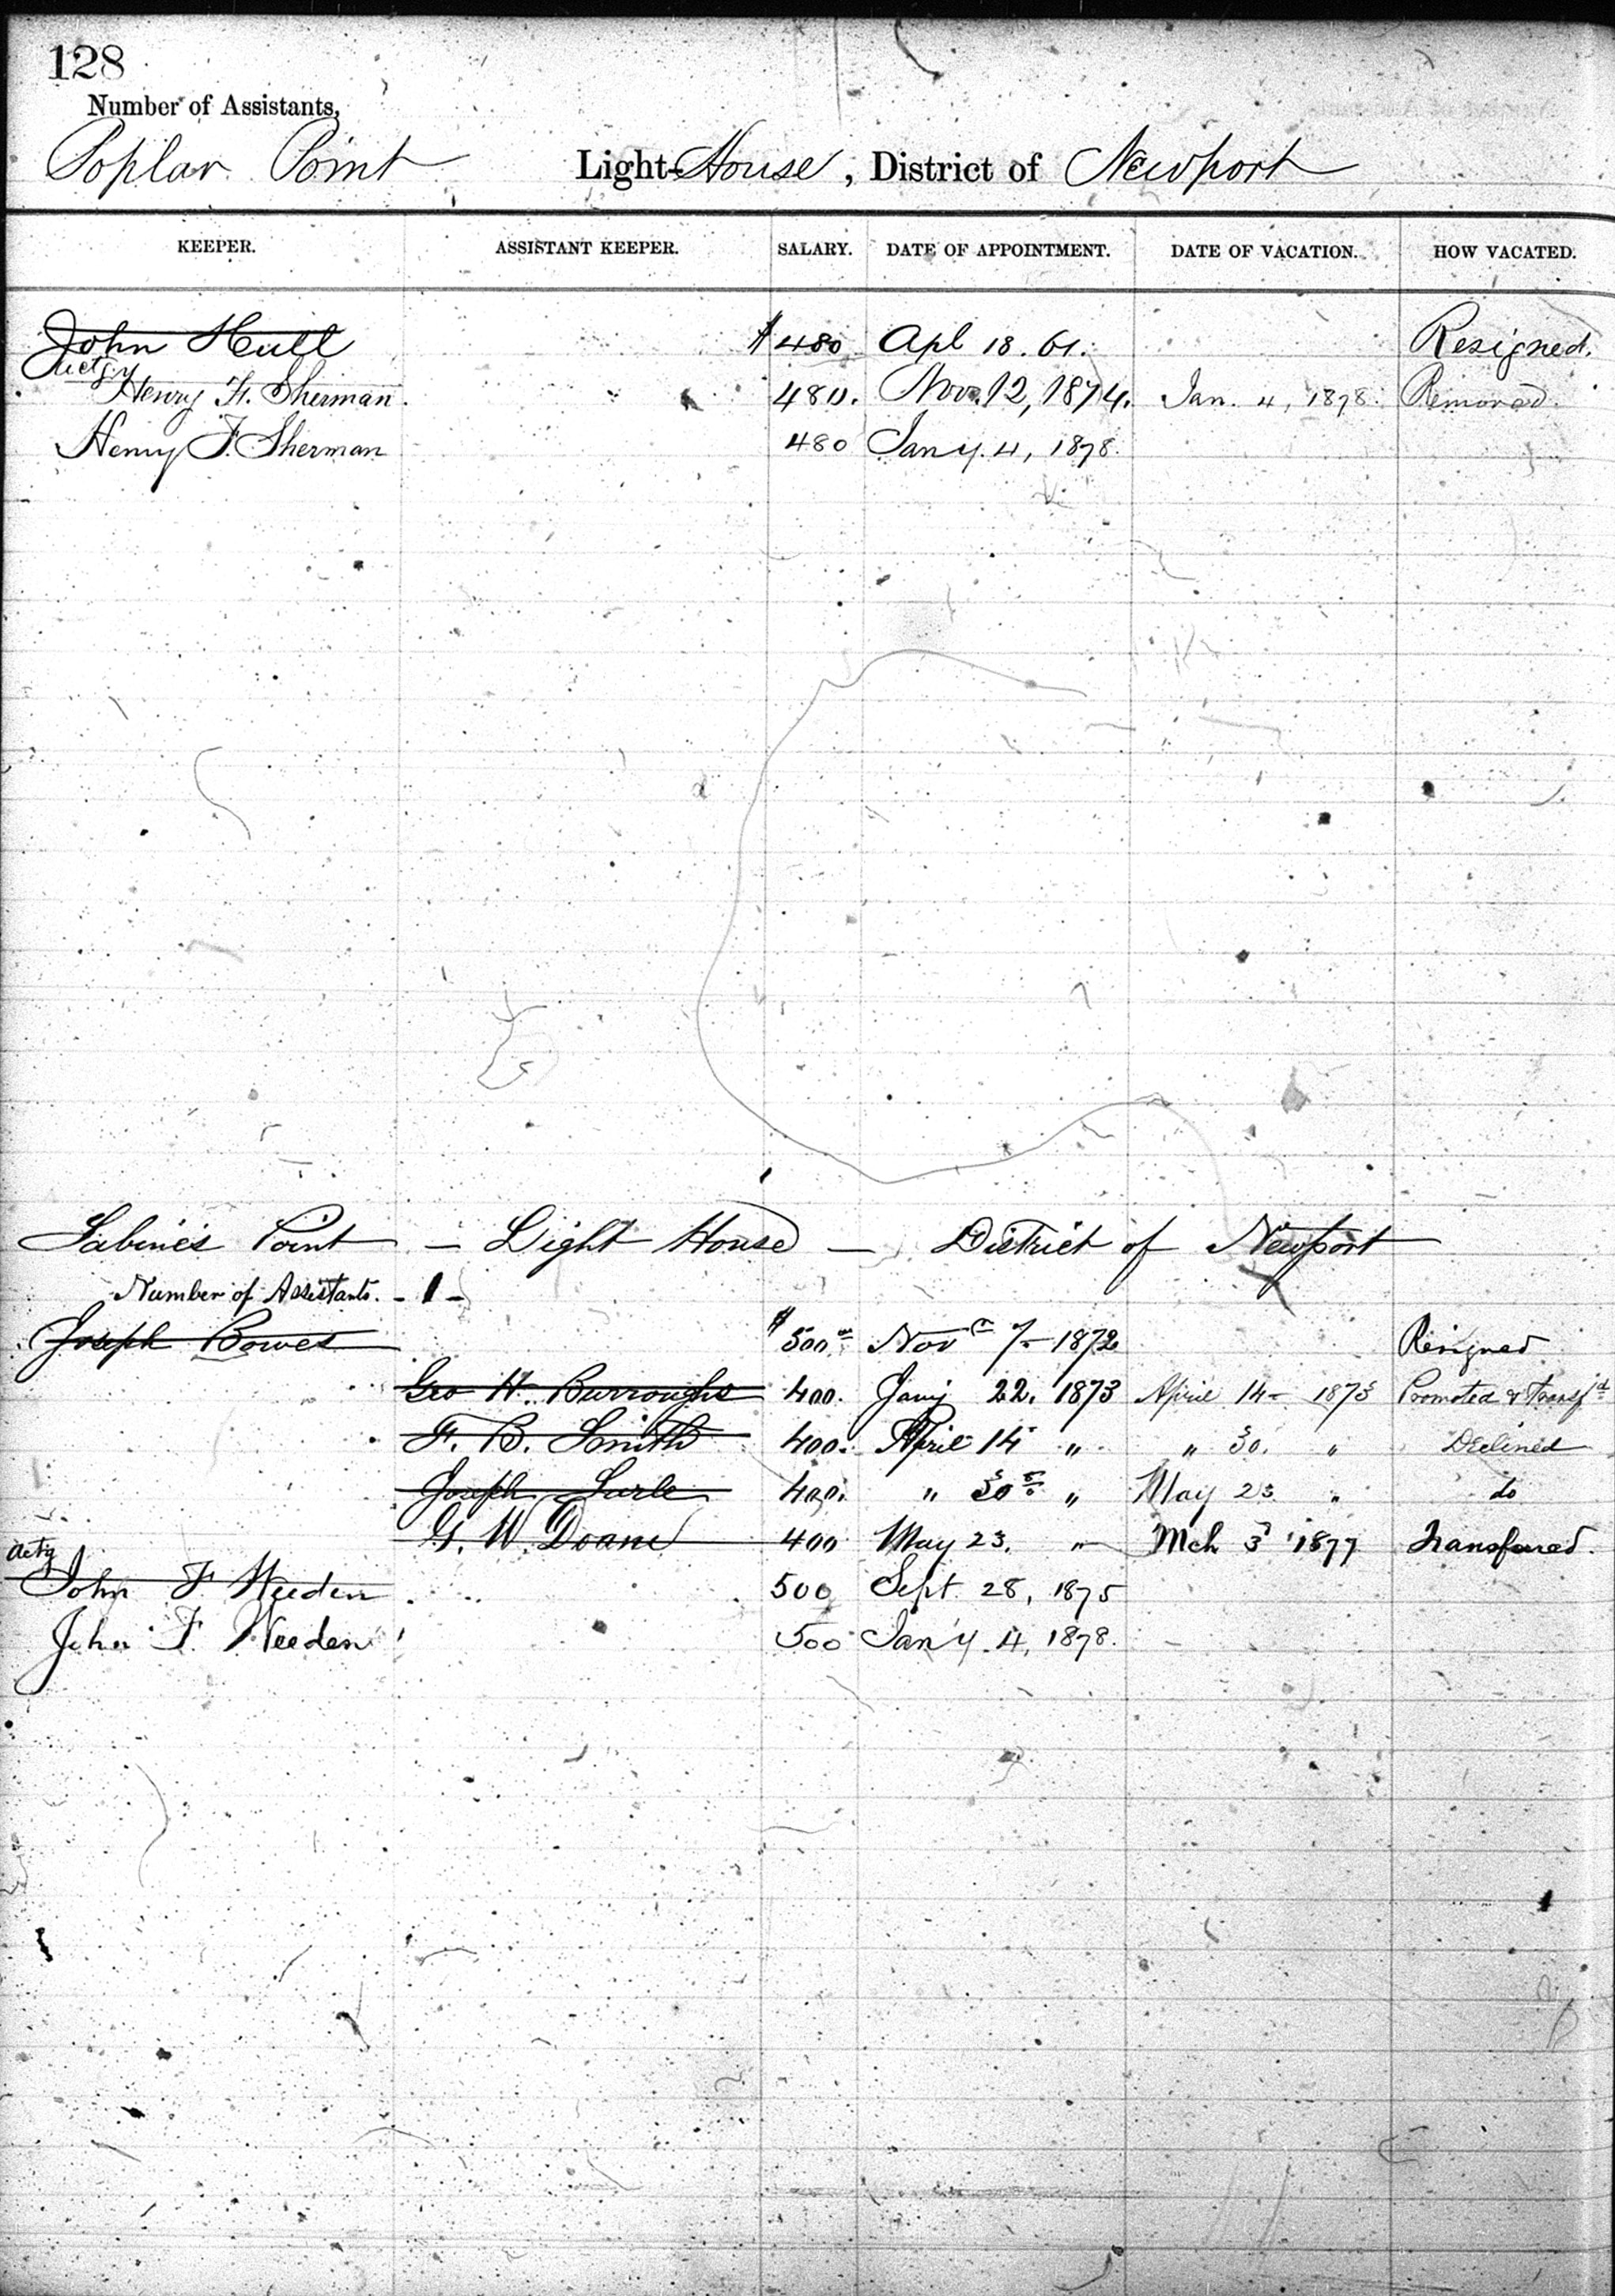 128
Number of Assistants,
Poplar Point Light-House, District of Newport
KEEPER. ASSISTANT KEEPER. SALARY. DATE OF APPOINTMENT. DATE OF VACATION. HOW VACATED.
John Hull $480 Apl 18. 61. Resigned.
Actg
Henry F. Sherman. 480. Nov. 12, 1874. Jan. 4, 1878. Removed.
Henry F. Sherman 480 Jany. 4, 1878.
Sabine's Point — Light House — District of Newport
Number of Assistants. - 1 -
Joseph Bowes $500 Nov 7 - 1872 Resigned
Geo H. Burroughs 400. Jany 22. 1873 April 14 - 1873 Promoted & transf'd
F. B. Smith 400. April 14 " " 30. " Declined
Joseph 400. " 30th " May 23 " do
G. W. Doane 400 May 23. " Mch 3 1877 Transferred.
Actg
John F Weeden 500 Sept. 28, 1875
John F. Weeden 500 Jan'y. 4, 1878.